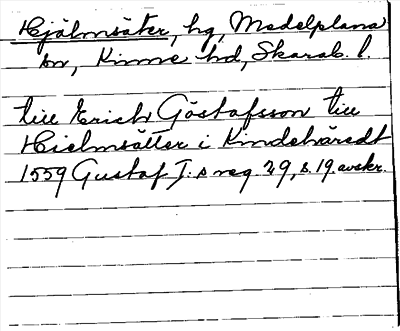 Hjälmsäter, hg, Medelplana
sn, Kinne hd, Skarab. l.
till Erich Göstafsson till
Hielmsätter i Kindehäredt
1559 Gustaf I:s reg. 29, s. 19. avskr.